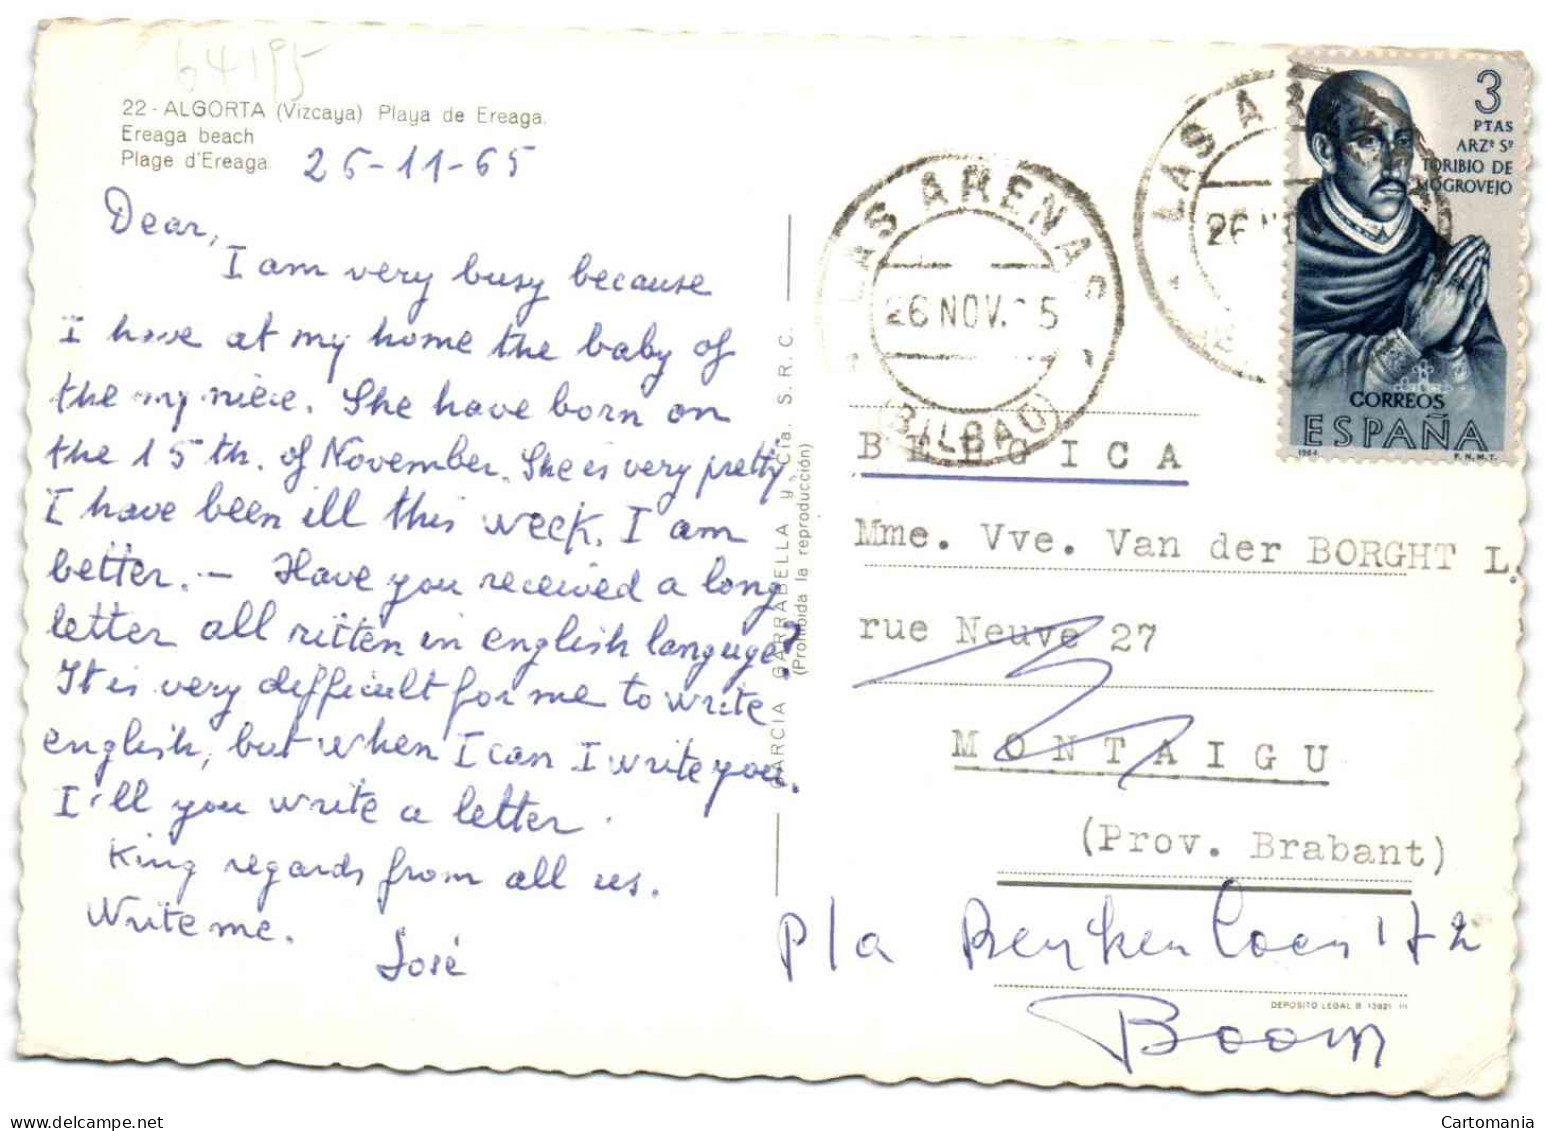 64195
22 - ALGORTA (Vizcaya) Playa de Ereaga.
Ereaga beach
Plage d'Ereaga
26-11-65
Dear,
I am very busy because
I have at my home the baby of
the my niece. She have born on
the 15 th. of November. She is very pretty
I have been ill this week. I am
better. — Have you received a long
letter all ritten in english languge?
It is very difficult for me to write
english, but when I can I write you.
I'll you write a letter.
King regards from all us.
Write me.
José
GARCIA GARRABELLA y Cía. S. R. C.
(Prohibida la reproducción)
LAS ARENAS
26 NOV. 65
(BILBAO)
LAS AR
26 N
3
PTAS
ARZº Sº
TORIBIO DE
MOGROVEJO
CORREOS
ESPAÑA
1964 F.N.M.T.
BELGICA
Mme. Vve. Van der BORGHT L.
rue Neuve 27
MONTAIGU
(Prov. Brabant)
p/a 172
Boom
DEPOSITO LEGAL B. 13921 III
Cartomania